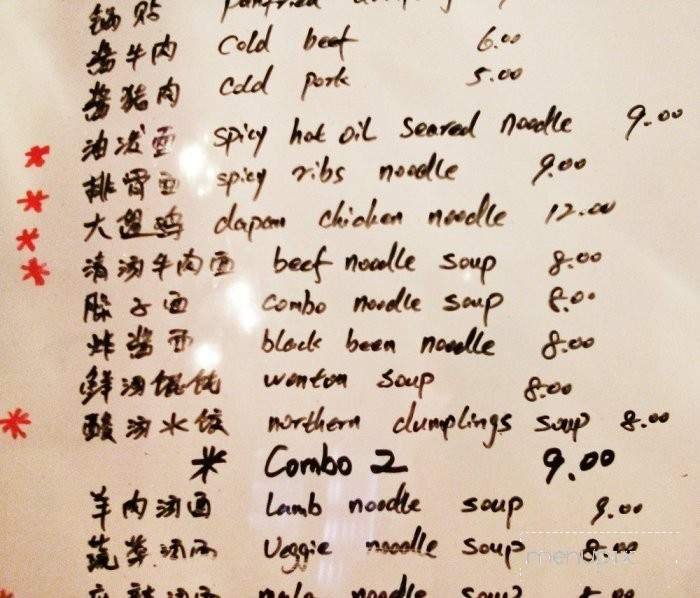 锅贴 panfried
酱牛肉 cold beef 6.00
酱猪肉 cold pork 5.00
油泼面 spicy hot oil seared noodle 9.00
排骨面 spicy ribs noodle 9.00
大盘鸡 dapan chicken noodle 12.00
清汤牛肉面 beef noodle soup 8.00
臊子面 combo noodle soup 8.00
炸酱面 black been noodle 8.00
鲜汤馄饨 wonton soup 8.00
酸汤水饺 northern dumplings soup 8.00
* Combo 2 9.00
羊肉汤面 Lamb noodle soup 9.00
蔬菜汤面 Veggie noodle soup 8.00
麻辣汤面 mala noodle soup 8.00